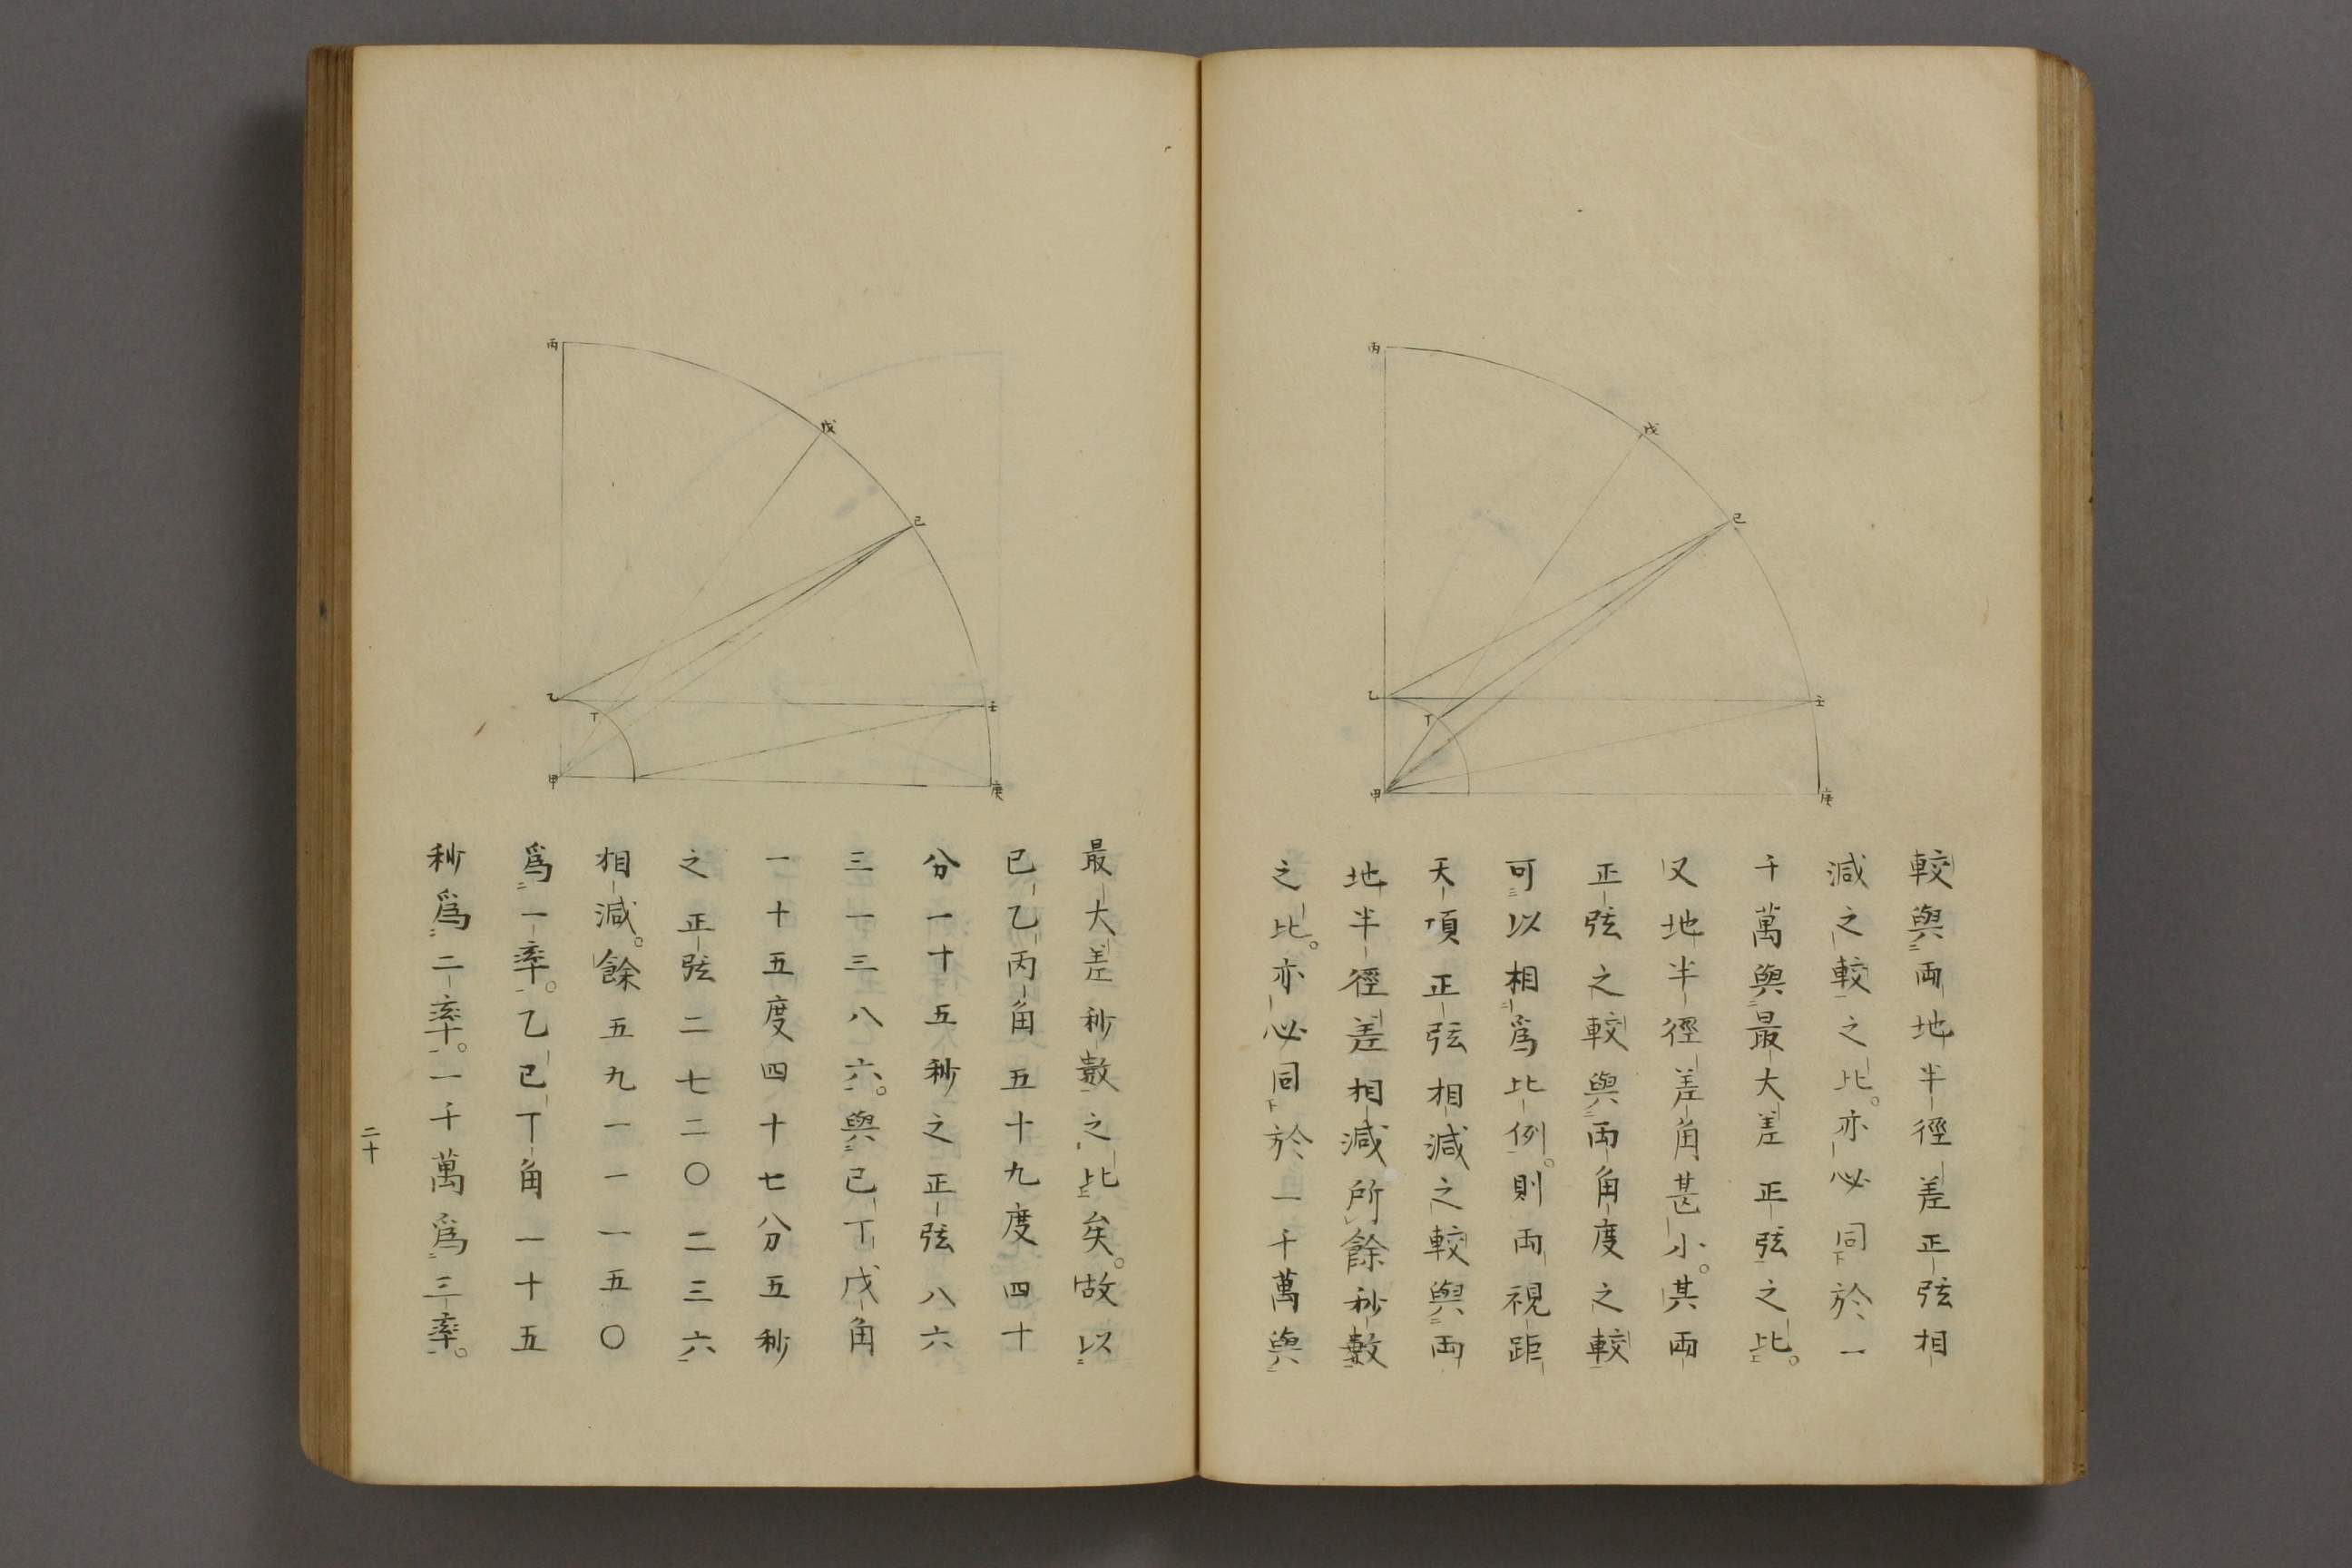 丙
戊
已
乙
丁
壬
甲
庚
較與両地半徑差正弦相
減之較之比。亦必同於一
千萬與最大差正弦之比。
又地半徑差角甚小。其両
正弦之較與両角度之較
可以相爲比例。則両視距
天頂正弦相減之較與両
地半徑差相減所餘秒數
之比。亦必同於一千萬與
丙
戊
已
乙
丁
壬
甲
庚
最大差秒數之比矣。故以
已乙丙角五十九度四十
分一十五秒之正弦八六
三一三八六。與已丁戊角
一十五度四十七分五秒
之正弦二七二〇二三六
相減。餘五九一一一五〇
爲一率。乙已丁角一十五
秒爲二率。一千萬爲三率。
二十